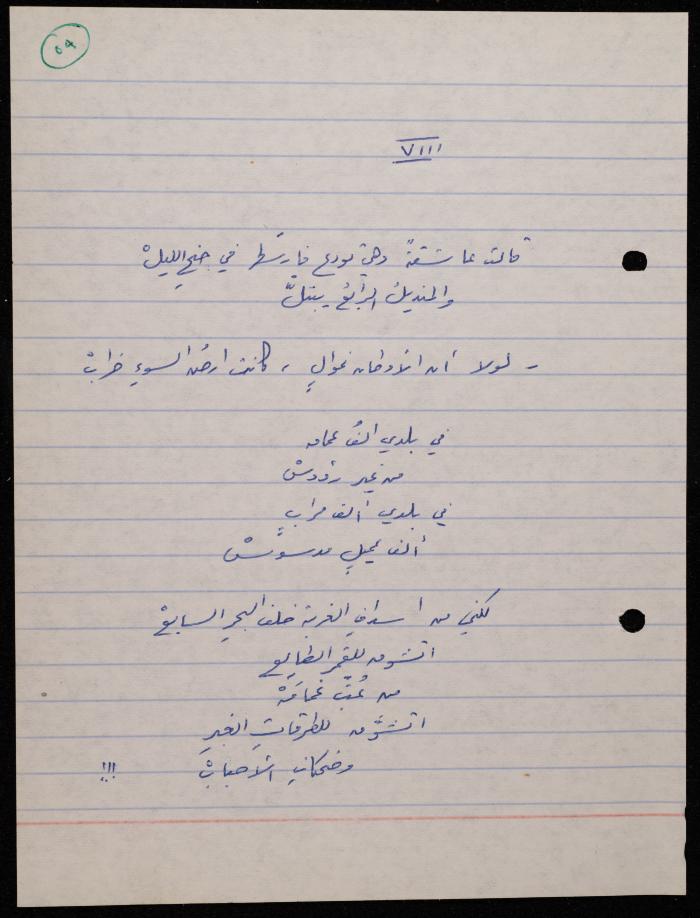 ٥٩
VIII
قالت عاشقةٌ وهي تودع فارسَها في جنحِ الليلْ
والمنديلُ الرائعُ يبتلّ
- لولا أن الأوطان غوالٍ ، كانت ارضُ السوءِ خرابْ
في بلدي الفُ عمامه
من غير رؤوسْ
في بلدي ألف مرابٍ
ألف عميلٍ مدسوسْ
لكني من اسدافِ الغربة خلف البحرِ السابعْ
اتشوق للقمر الطالع
من عُبّ غمامَهْ
اتشوَّق للطرقاتِ الغبرِ
وضحكاتِ الأحبابْ !!!